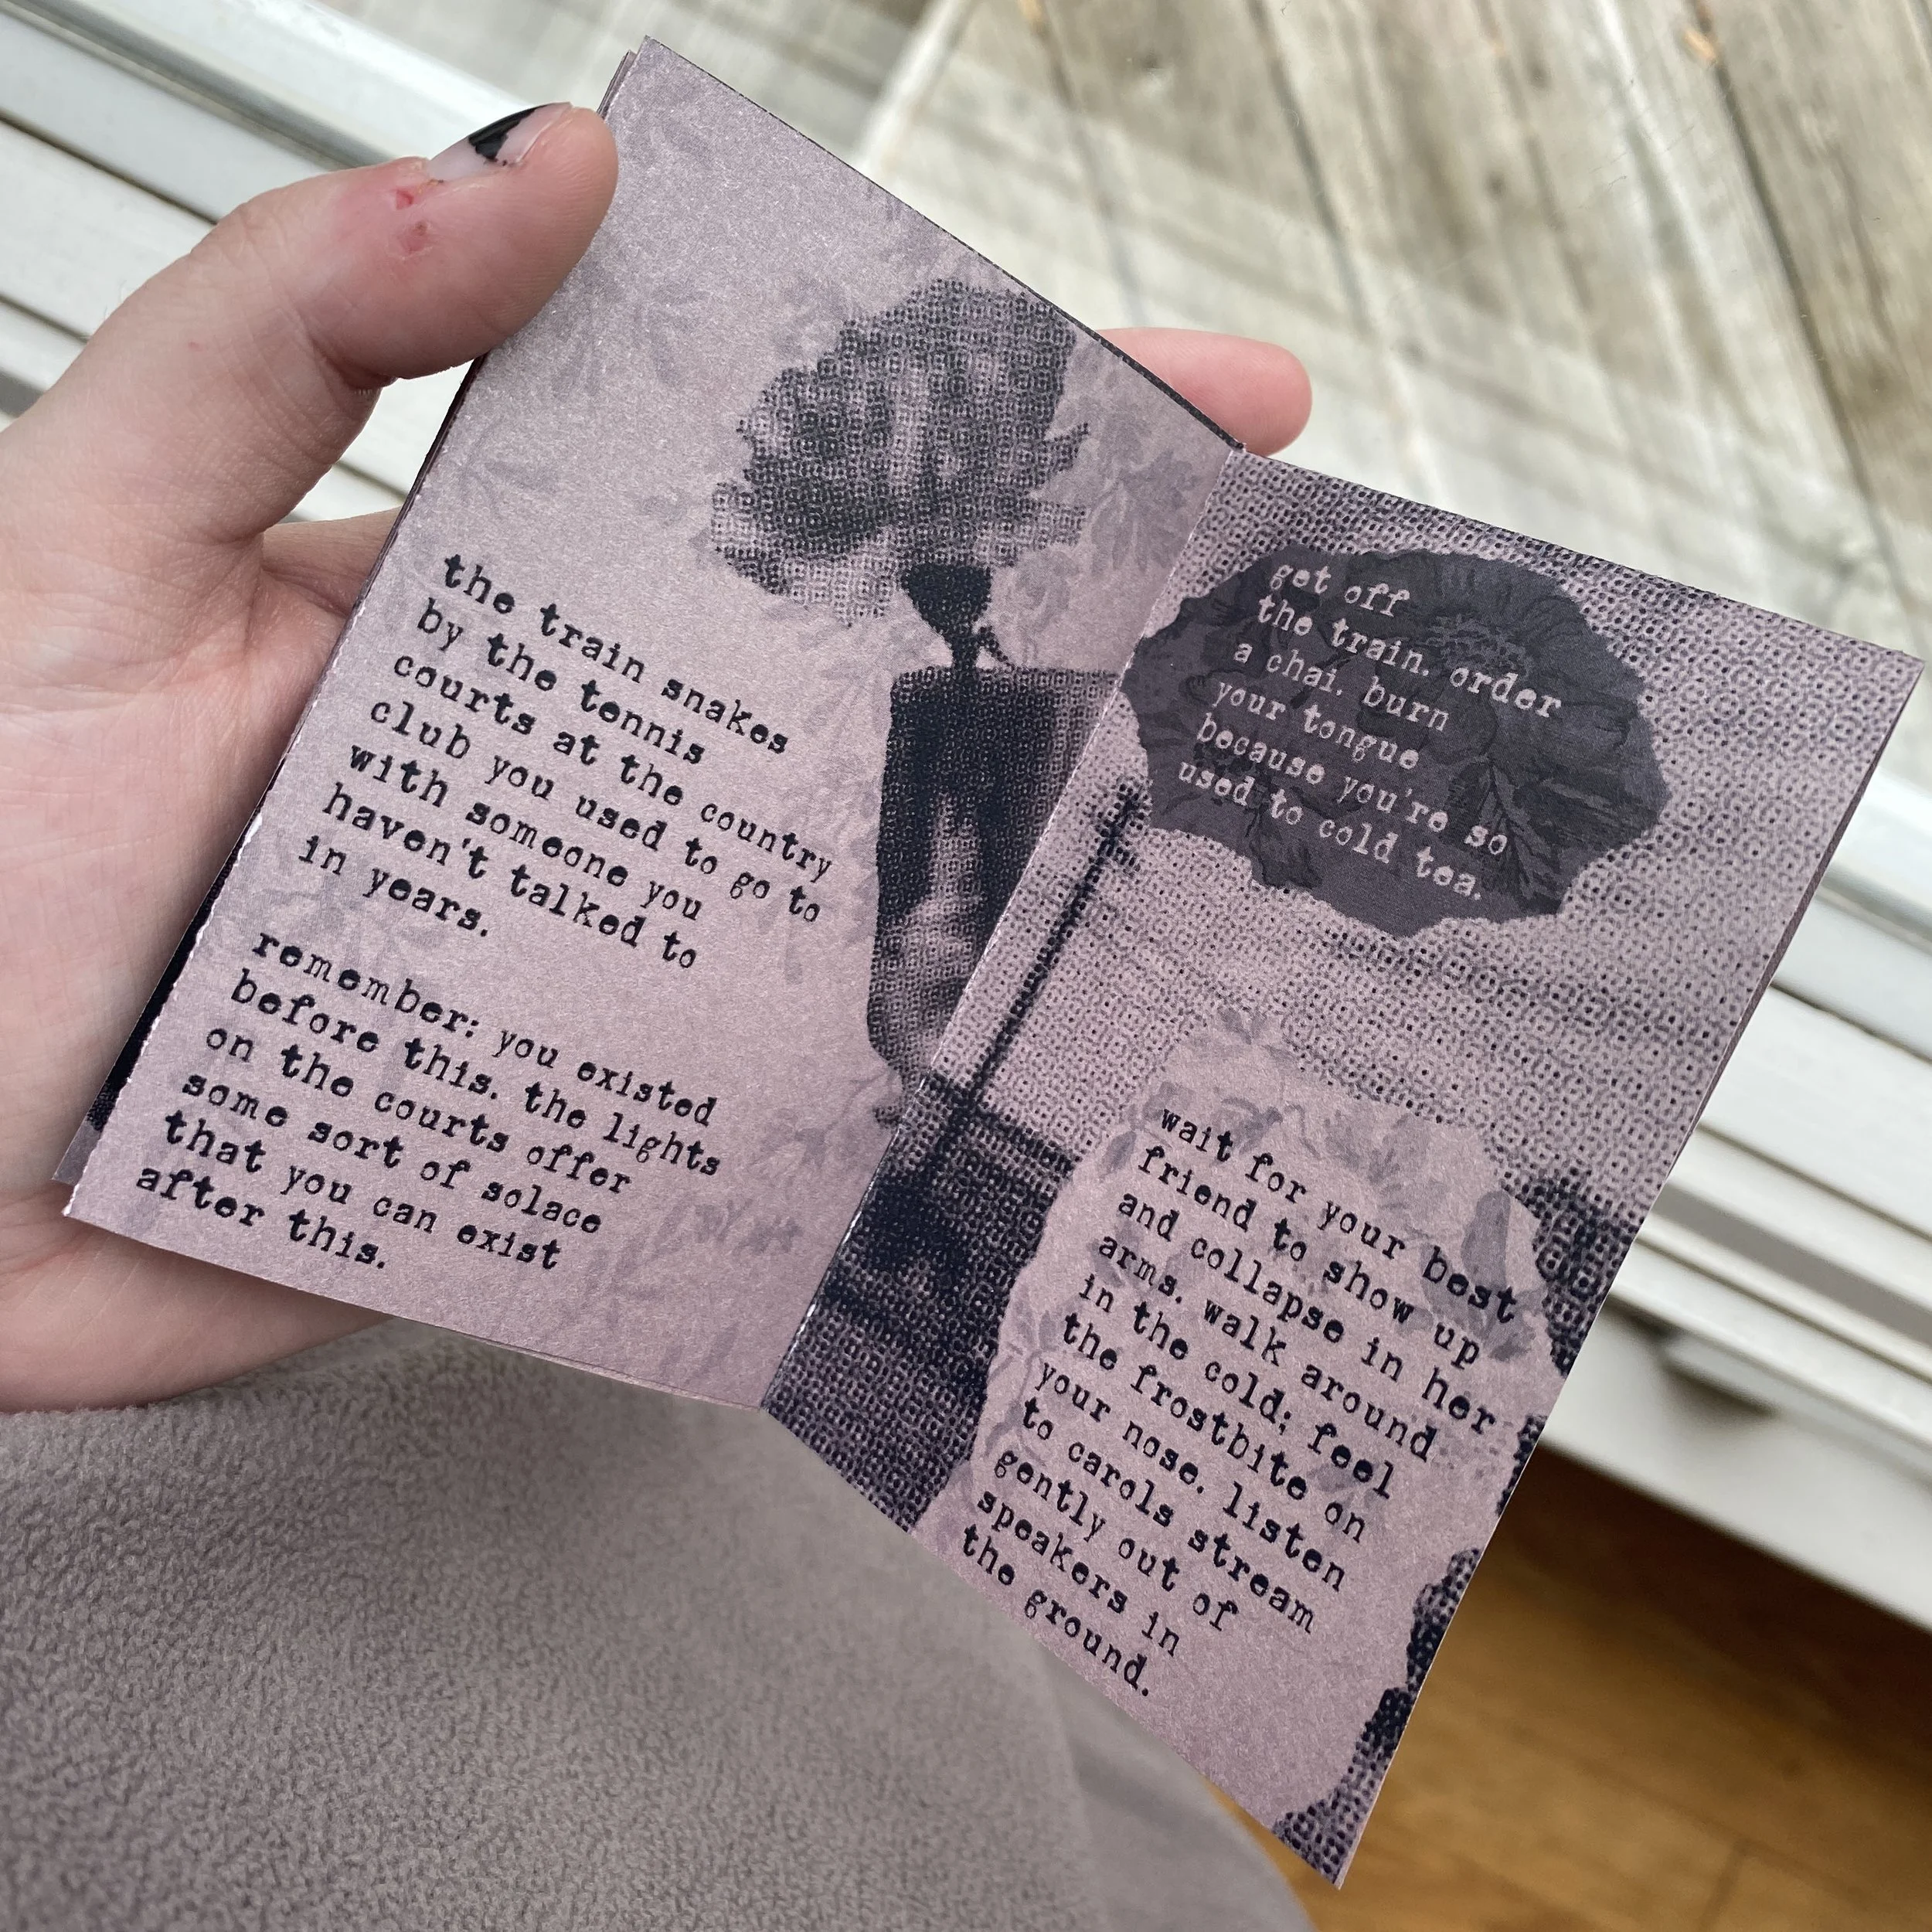 the train snakes
by the tennis
courts at the country
club you used to go to
with someone you
haven't talked to
in years.
remember: you existed
before this. the lights
on the courts offer
some sort of solace
that you can exist
after this.
get off
the train. order
a chai. burn
your tongue
because you're so
used to cold tea.
wait for your best
friend to show up
and collapse in her
arms. walk around
in the cold; feel
the frostbite on
your nose. listen
to carols stream
gently out of
speakers in
the ground.